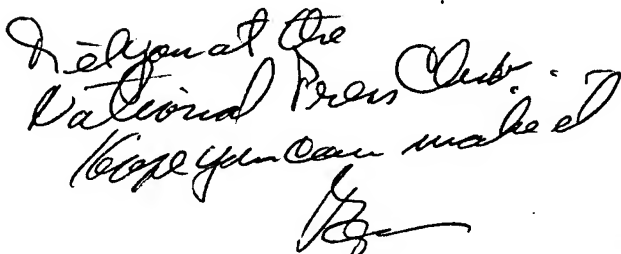 at the
National Press Club.
Hope you can make it